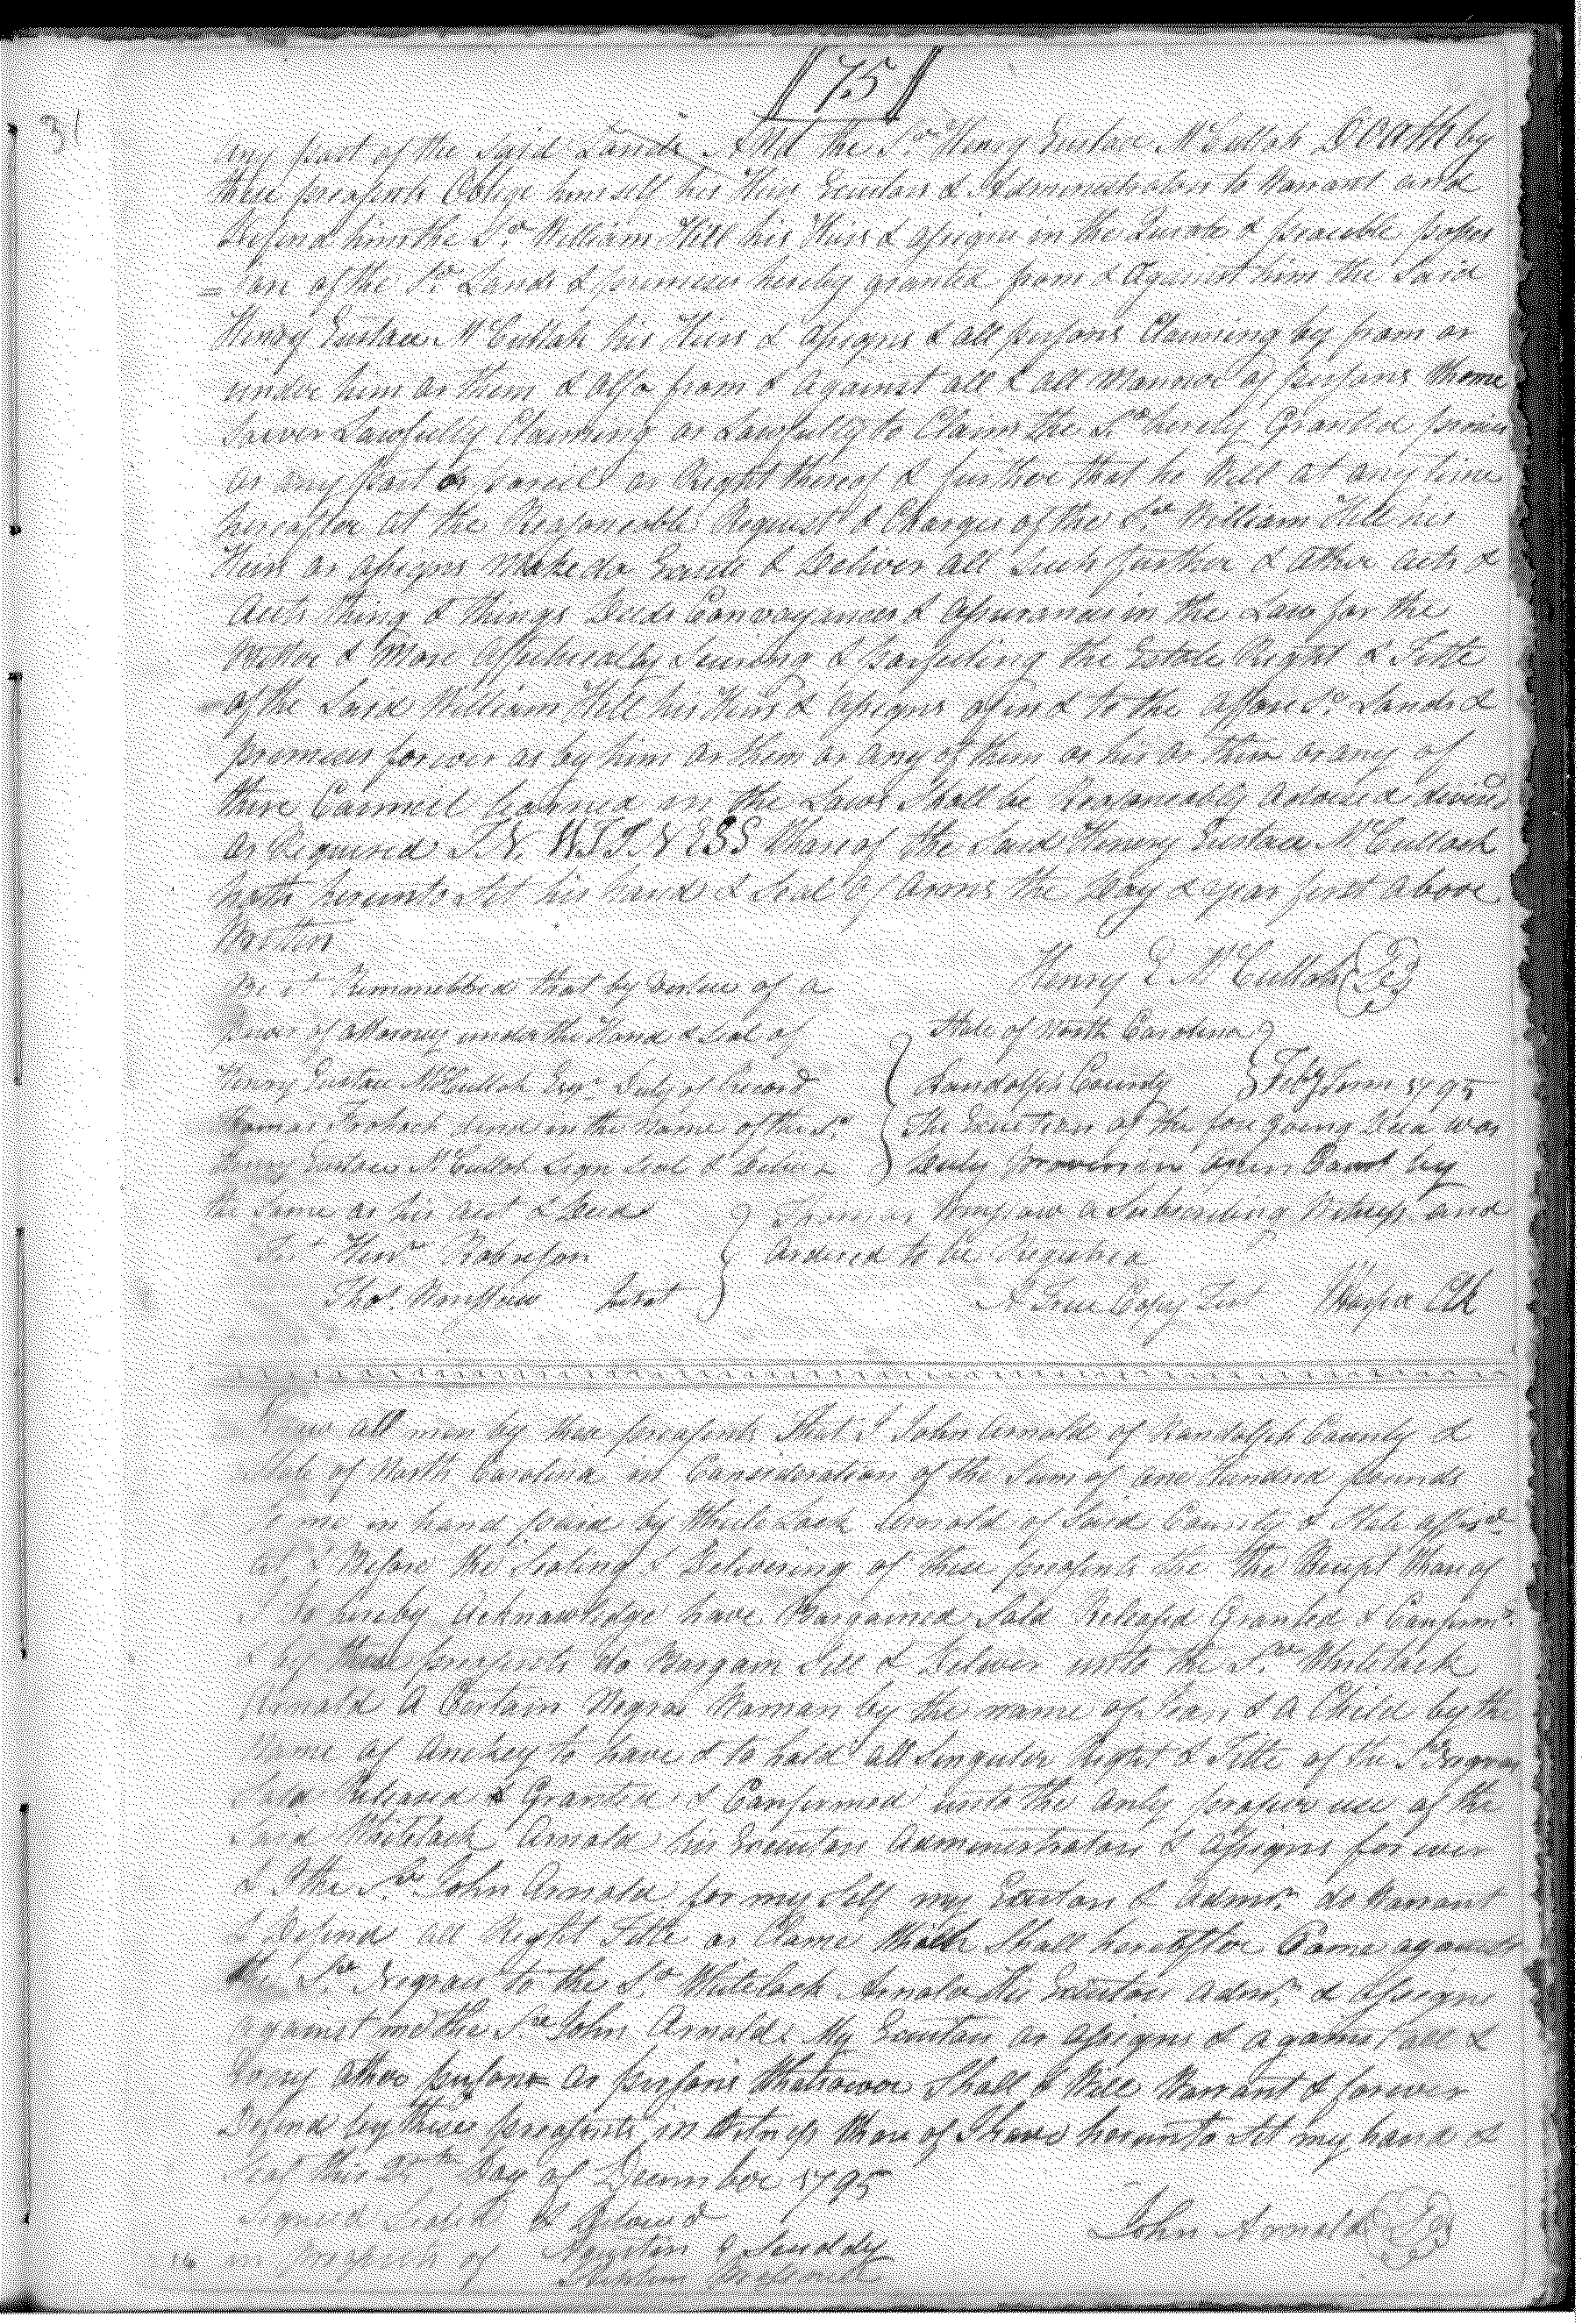 31
[75]
any part of the Said Lands And the Sd. Henry Eustace McCulloh Doath by
these presents Oblige himself his Heirs Executors & Administrators to Warrant and
Defend him the Sd. William Hill his Heirs & assigns in the Quiate & peaceble posses
= sion of the Sd. Lands & premises hereby granted from & against him the Said
Henry Eustace McCulloh his Heirs & assigns & all persons Claiming by from or
under him or them & also from & against all & all manner of persons whome
Soever Lawfully Claiming or Lawfully to Claim the Sd. hereby Granted premis
or any Part or Parcel or Right thereof & further that he Will at any time
hereafter at the Reasonable Request & Charges of the Sd. William Hill his
Heirs or assigns Make do Execute & Deliver all Such further & other acts &
acts thing & things Deeds Conveyances & assurances in the Law for the
Better & More Effectually Securing & Confecting the Estate Right & Title
of the Said William Hill his Heirs & assigns of in & to the affore Sd. Lands &
premises forever as by him or them or any of them or his or their or any of
there Council learned in the Laws Shall be Reasonably advised devised
or Required IN WITNESS Whare of the Said Henry Eustace McCulloh
hath hereunto Set his hand & Seal of Arms the Day & year first above
Written
Henry E McCulloh
Be it Rimmebbred that by virtue of a
power of attorney under the Hand & Seal of
Henry Eustace McCulloh Esqr. Duly of Record
Thomas Frohock did in the Name of the Sd.
Henry Eustace McCulloh Sign Seal & Deliver
the Same as his act & Deed
Test Henr Robinson
Thos. Jurat
State of North Carolina
Randolph County Feby Term 1795
The Execution of the foregoing Deed was
Duly proven in open Court by
Thomas a Subscribing Witness and
ordered to be Registred
A True Copy Test Harper Clk
Know all men by these presents That I John Arnold of Randolph County &
State of North Carolina in Consideration of the Sum of one hundred pounds
to me in hand paid by Whitelock Arnold of Said County & State affsd.
at & Before the Sealing & Delivering of these presents the the Receipt Whareof
I do hereby Acknowledge have Bargained Sold Released Granted & Confirmd.
& by these presents do Bargain Sell & Deliver unto the Sd. Whitelock
Arnold A Certain Negroe Woman by the name of Jean & A Child by the
Name of Anckey to have & to hold all Singuler Right & Title of the Sd. Negroes
Sold Released & Granted & Confirmed unto the only proper use of the
Said Whitelock Arnold his Executors Administrators & assigns for ever
& I the Sd. John Arnold for my Self my Executors & Admrs. do Warrant
& Defend all Right Title or Clame Which Shall hereafter Come against
the Sd. Negroes to the Sd. Whitelock Arnold His Executors admrs. & assigns
against me the Sd. John Arnold My Executors or assigns & against all &
Every other person or persons Whatsoever Shall & Will Warrant & forever
Defend by these presents in Witness Whare of I have hereunto Set my hand &
Seal this 25th Day of December 1795
Signed Sealed & Delivered
in presents of
John Arnold